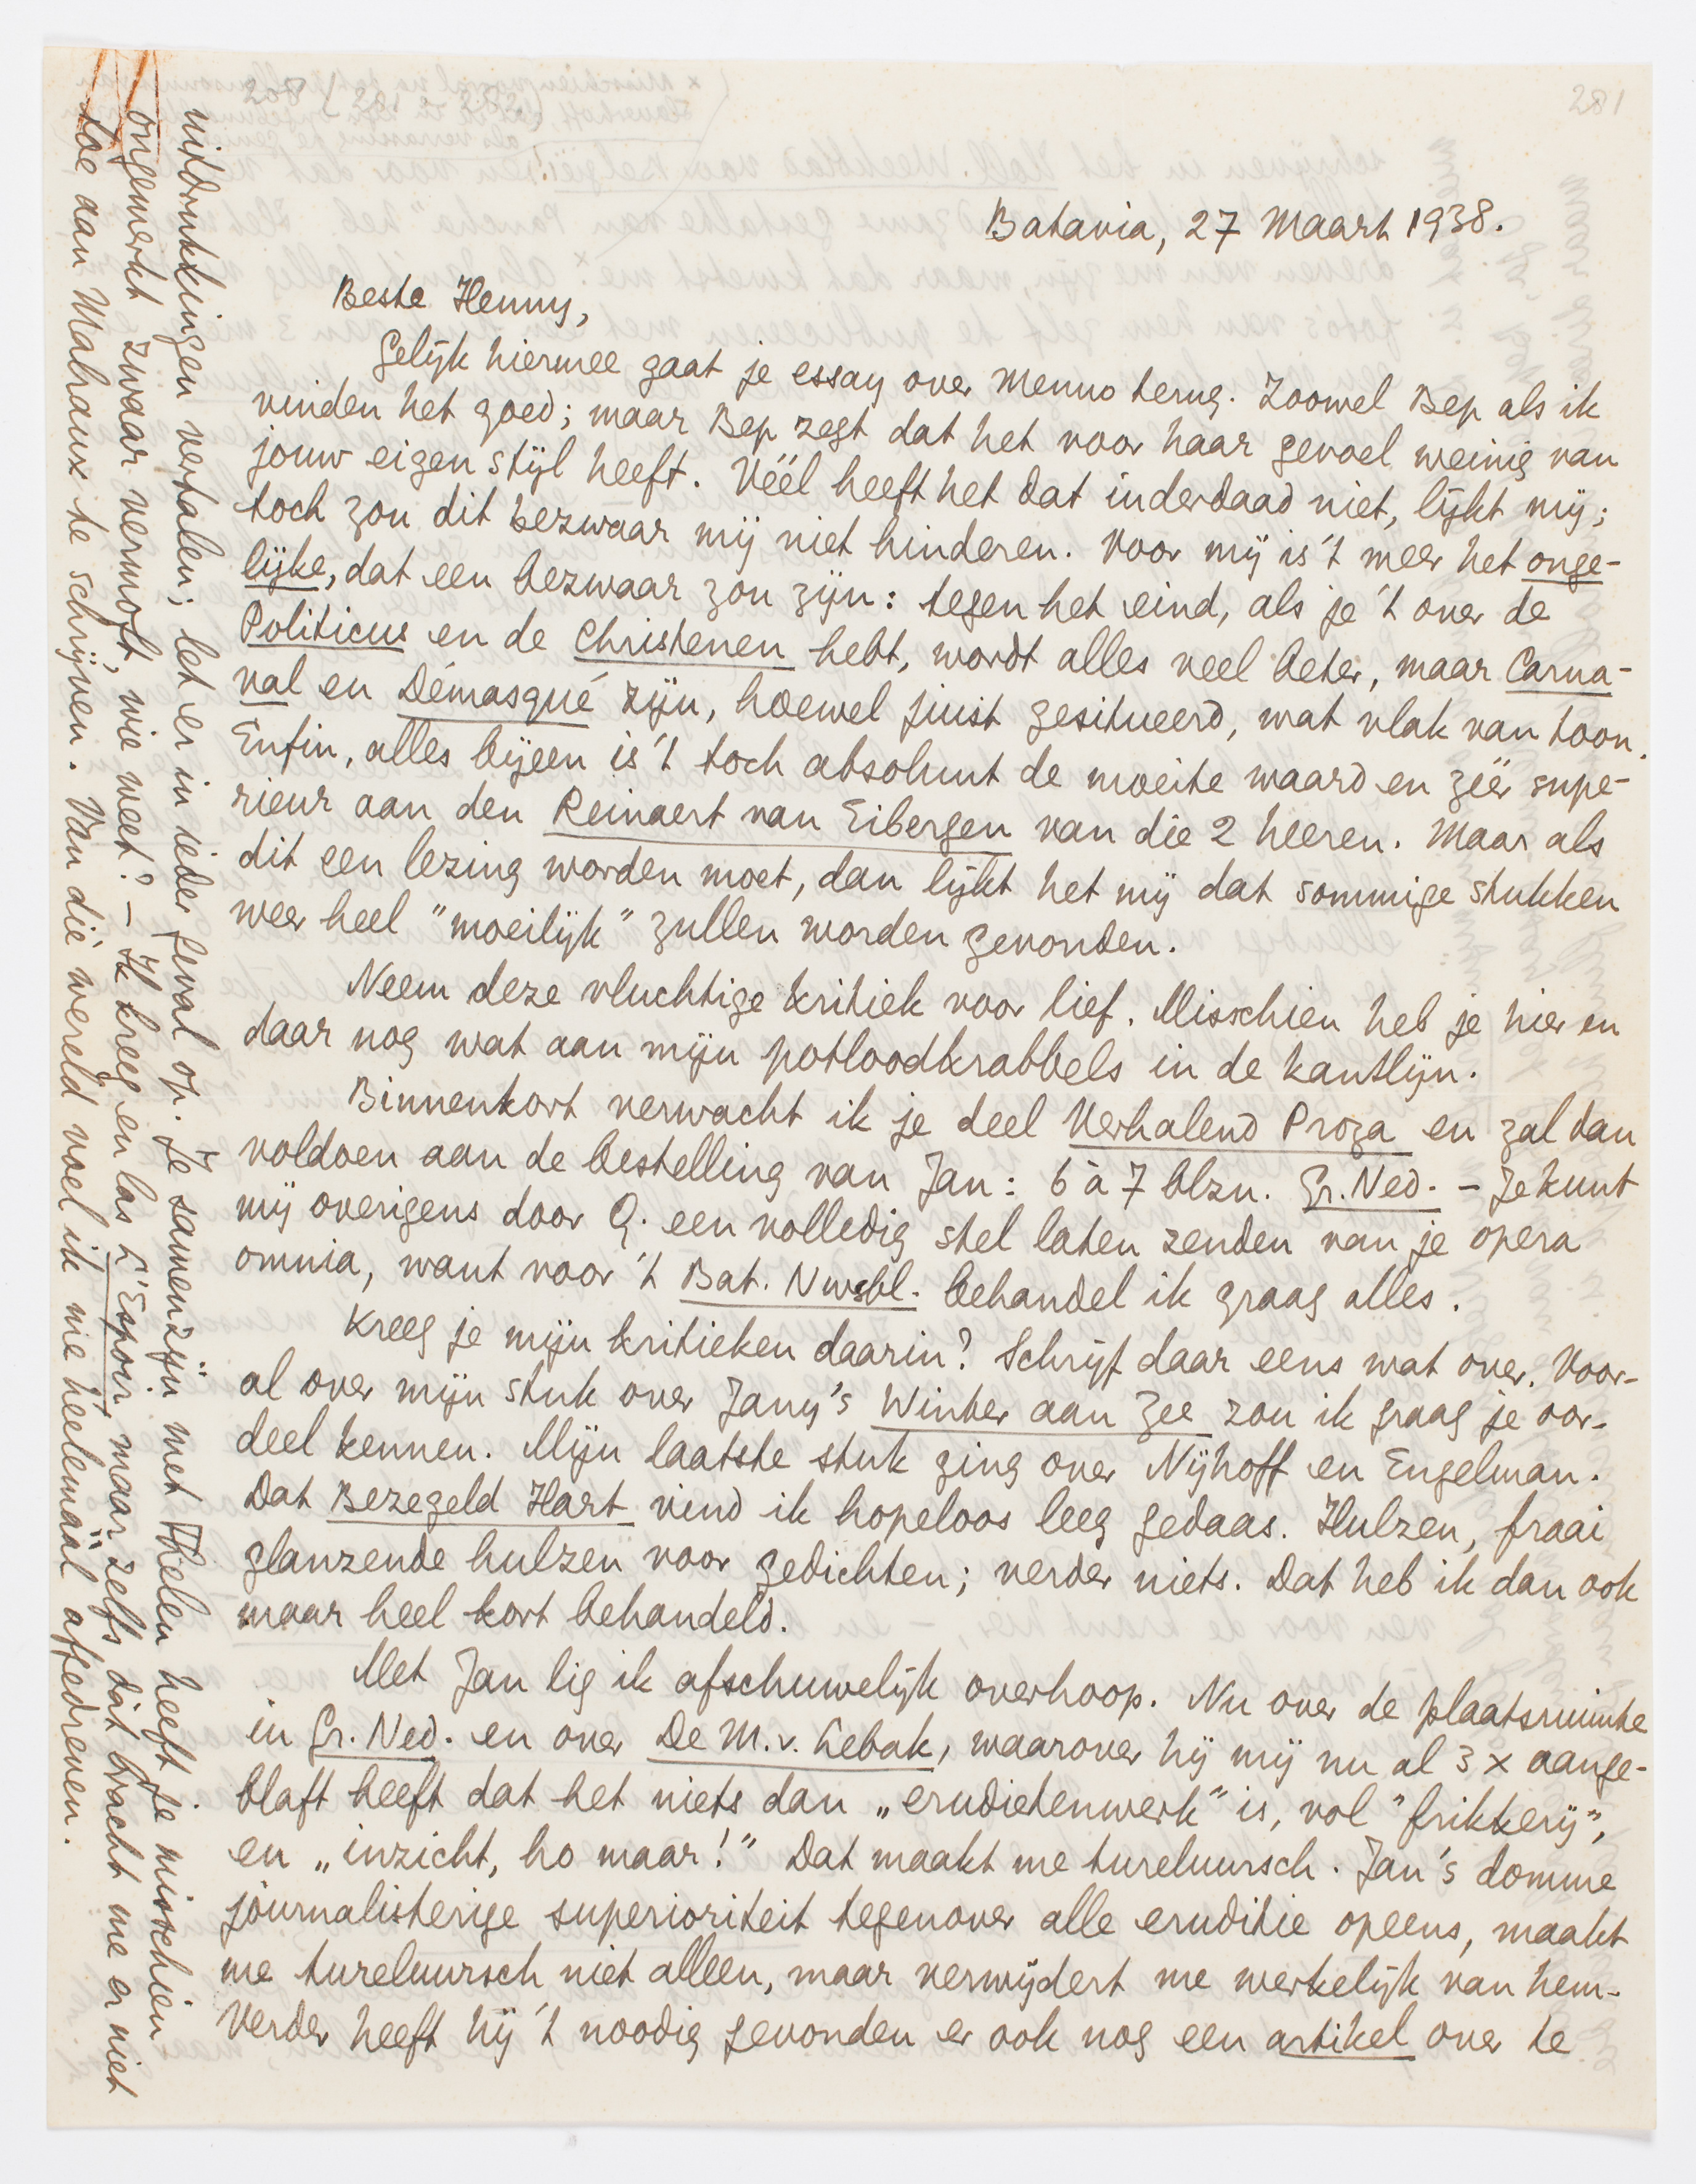 281
Batavia, 27 Maart 1938.
Beste Henny,
Gelijk hiermee gaat je essay over Menno terug. Zoowel Bep als ik
vinden het goed; maar Bep zegt dat het voor haar gevoel weinig van
jouw eigen stijl heeft. Véél heeft het dat inderdaad niet, lijkt mij;
toch zou dit bezwaar mij niet hinderen. Voor mij is 't meer het onge-
lijke, dat een bezwaar zou zijn: tegen het eind, als je 't over de
Politicus en de Christenen hebt, wordt alles veel beter, maar Carna-
val en Démasqué zijn, hoewel juist gesitueerd, wat vlak van toon.
Enfin, alles bijeen is 't toch absoluut de moeite waard en zéér supe-
rieur aan den Reinaert van Eibergen van die 2 heeren. Maar als
dit een lezing worden moet, dan lijkt het mij dat sommige stukken
weer heel "moeilijk" zullen worden gevonden.
Neem deze vluchtige kritiek voor lief. Misschien heb je hier en
daar nog wat aan mijn potloodkrabbels in de kantlijn.
Binnenkort verwacht ik je deel Verhalend Proza en zal dan
voldoen aan de bestelling van Jan: 6 à 7 blzn. Gr. Ned. - Je kunt
mij overigens door Q. een volledig stel laten zenden van je opera
omnia, want voor 't Bat. Nwsbl. behandel ik graag alles.
Kreeg je mijn kritieken daarin? Schrijf daar eens wat over. Voor-
al over mijn stuk over Jany's Winter aan Zee zou ik graag je oor-
deel kennen. Mijn laatste stuk ging over Nijhoff en Engelman.
Dat Bezegeld Hart vind ik hopeloos leeg gedaas. Hulzen, fraai
glanzende hulzen voor gedichten; verder niets. Dat heb ik dan ook
maar heel kort behandeld.
Met Jan lig ik afschuwelijk overhoop. Nu over de plaatsruimte
in Gr. Ned. en over De M. v. Lebak, waarover hij mij nu al 3 x aange-
blaft heeft dat het niets dan „erudietenwerk" is, vol "frikkerij",
en „inzicht, ho maar!" Dat maakt me tureluursch. Jan's domme
journalisterige superioriteit tegenover alle eruditie opeens, maakt
me tureluursch niet alleen, maar verwijdert me werkelijk van hem.
Verder heeft hij 't noodig gevonden er ook nog een artikel over te
uitdrukkingen vertalen; let er in ieder geval op. Je samenzijn met Thelen heeft je misschien
ongemerkt zwaar vermoft, wie weet? - Ik kreeg en las L'Espoir, maar zelfs dàt bracht me er niet
toe aan Malraux te schrijven. Van dié wereld voel ik me heelemáál afgedreven.